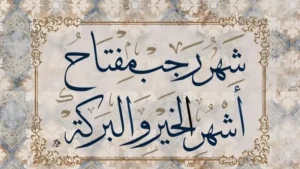 شهر رجب مفتاح
أشهر الخير والبركة